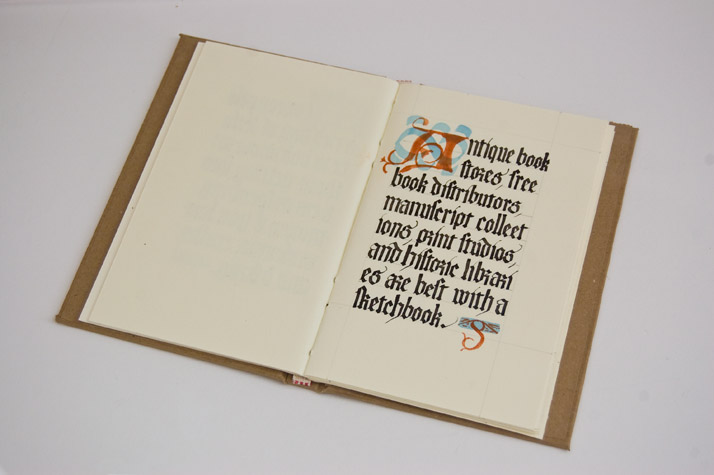 Antique book
stores, free
book distributors,
manuscript collect
ions, print studios,
and historic librari
es are best with a
sketchbook.